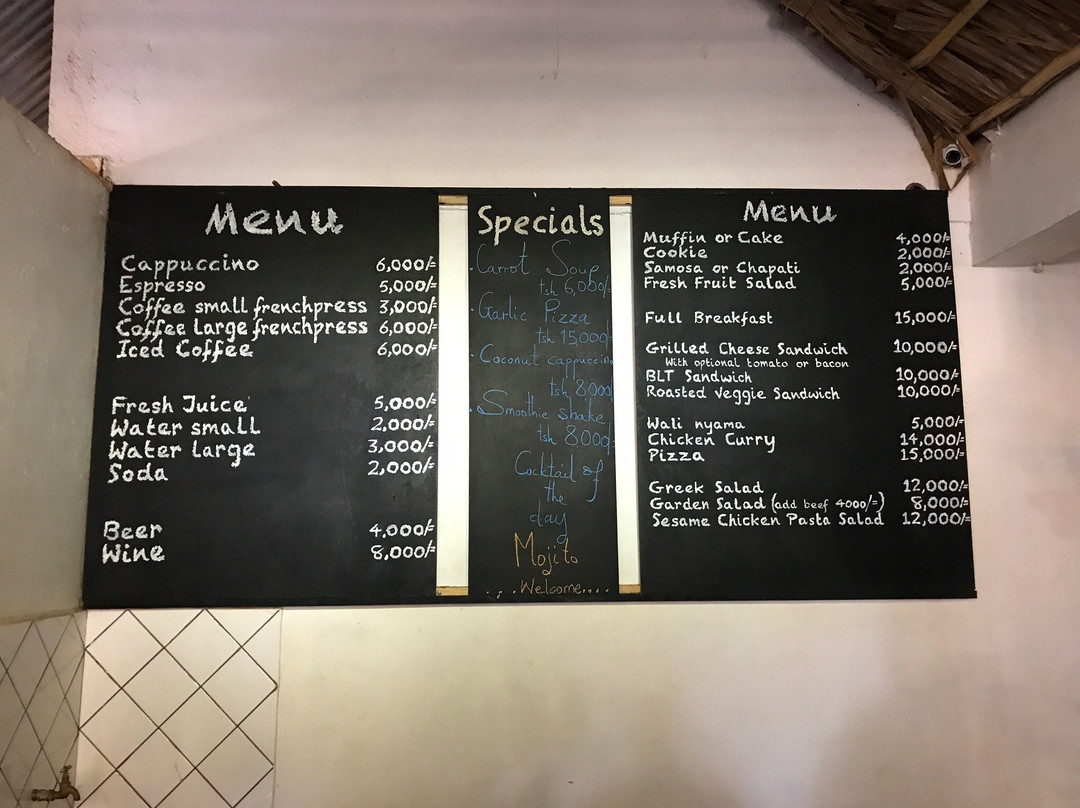 Menu
Cappuccino 6,000/=
Espresso 5,000/=
Coffee small frenchpress 3,000/=
Coffee large frenchpress 6,000/=
Iced Coffee 6,000/=
Fresh Juice 5,000/=
Water small 2,000/=
Water large 3,000/=
Soda 2,000/=
Beer 4,000/=
Wine 8,000/=
Specials
. Carrot Soup
tsh 6,000/=
. Garlic Pizza
tsh 15,000/=
. Coconut cappuccino
tsh 8,000/=
. Smoothie shake
tsh 8,000/=
Cocktail of
the
day
Mojito
...Welcome....
Menu
Muffin or Cake 4,000/=
Cookie 2,000/=
Samosa or Chapati 2,000/=
Fresh Fruit Salad 5,000/=
Full Breakfast 15,000/=
Grilled Cheese Sandwich 10,000/=
With optional tomato or bacon
BLT Sandwich 10,000/=
Roasted Veggie Sandwich 10,000/=
Wali nyama 5,000/=
Chicken Curry 14,000/=
Pizza 15,000/=
Greek Salad 12,000/=
Garden Salad (add beef 4000/=) 8,000/=
Sesame Chicken Pasta Salad 12,000/=